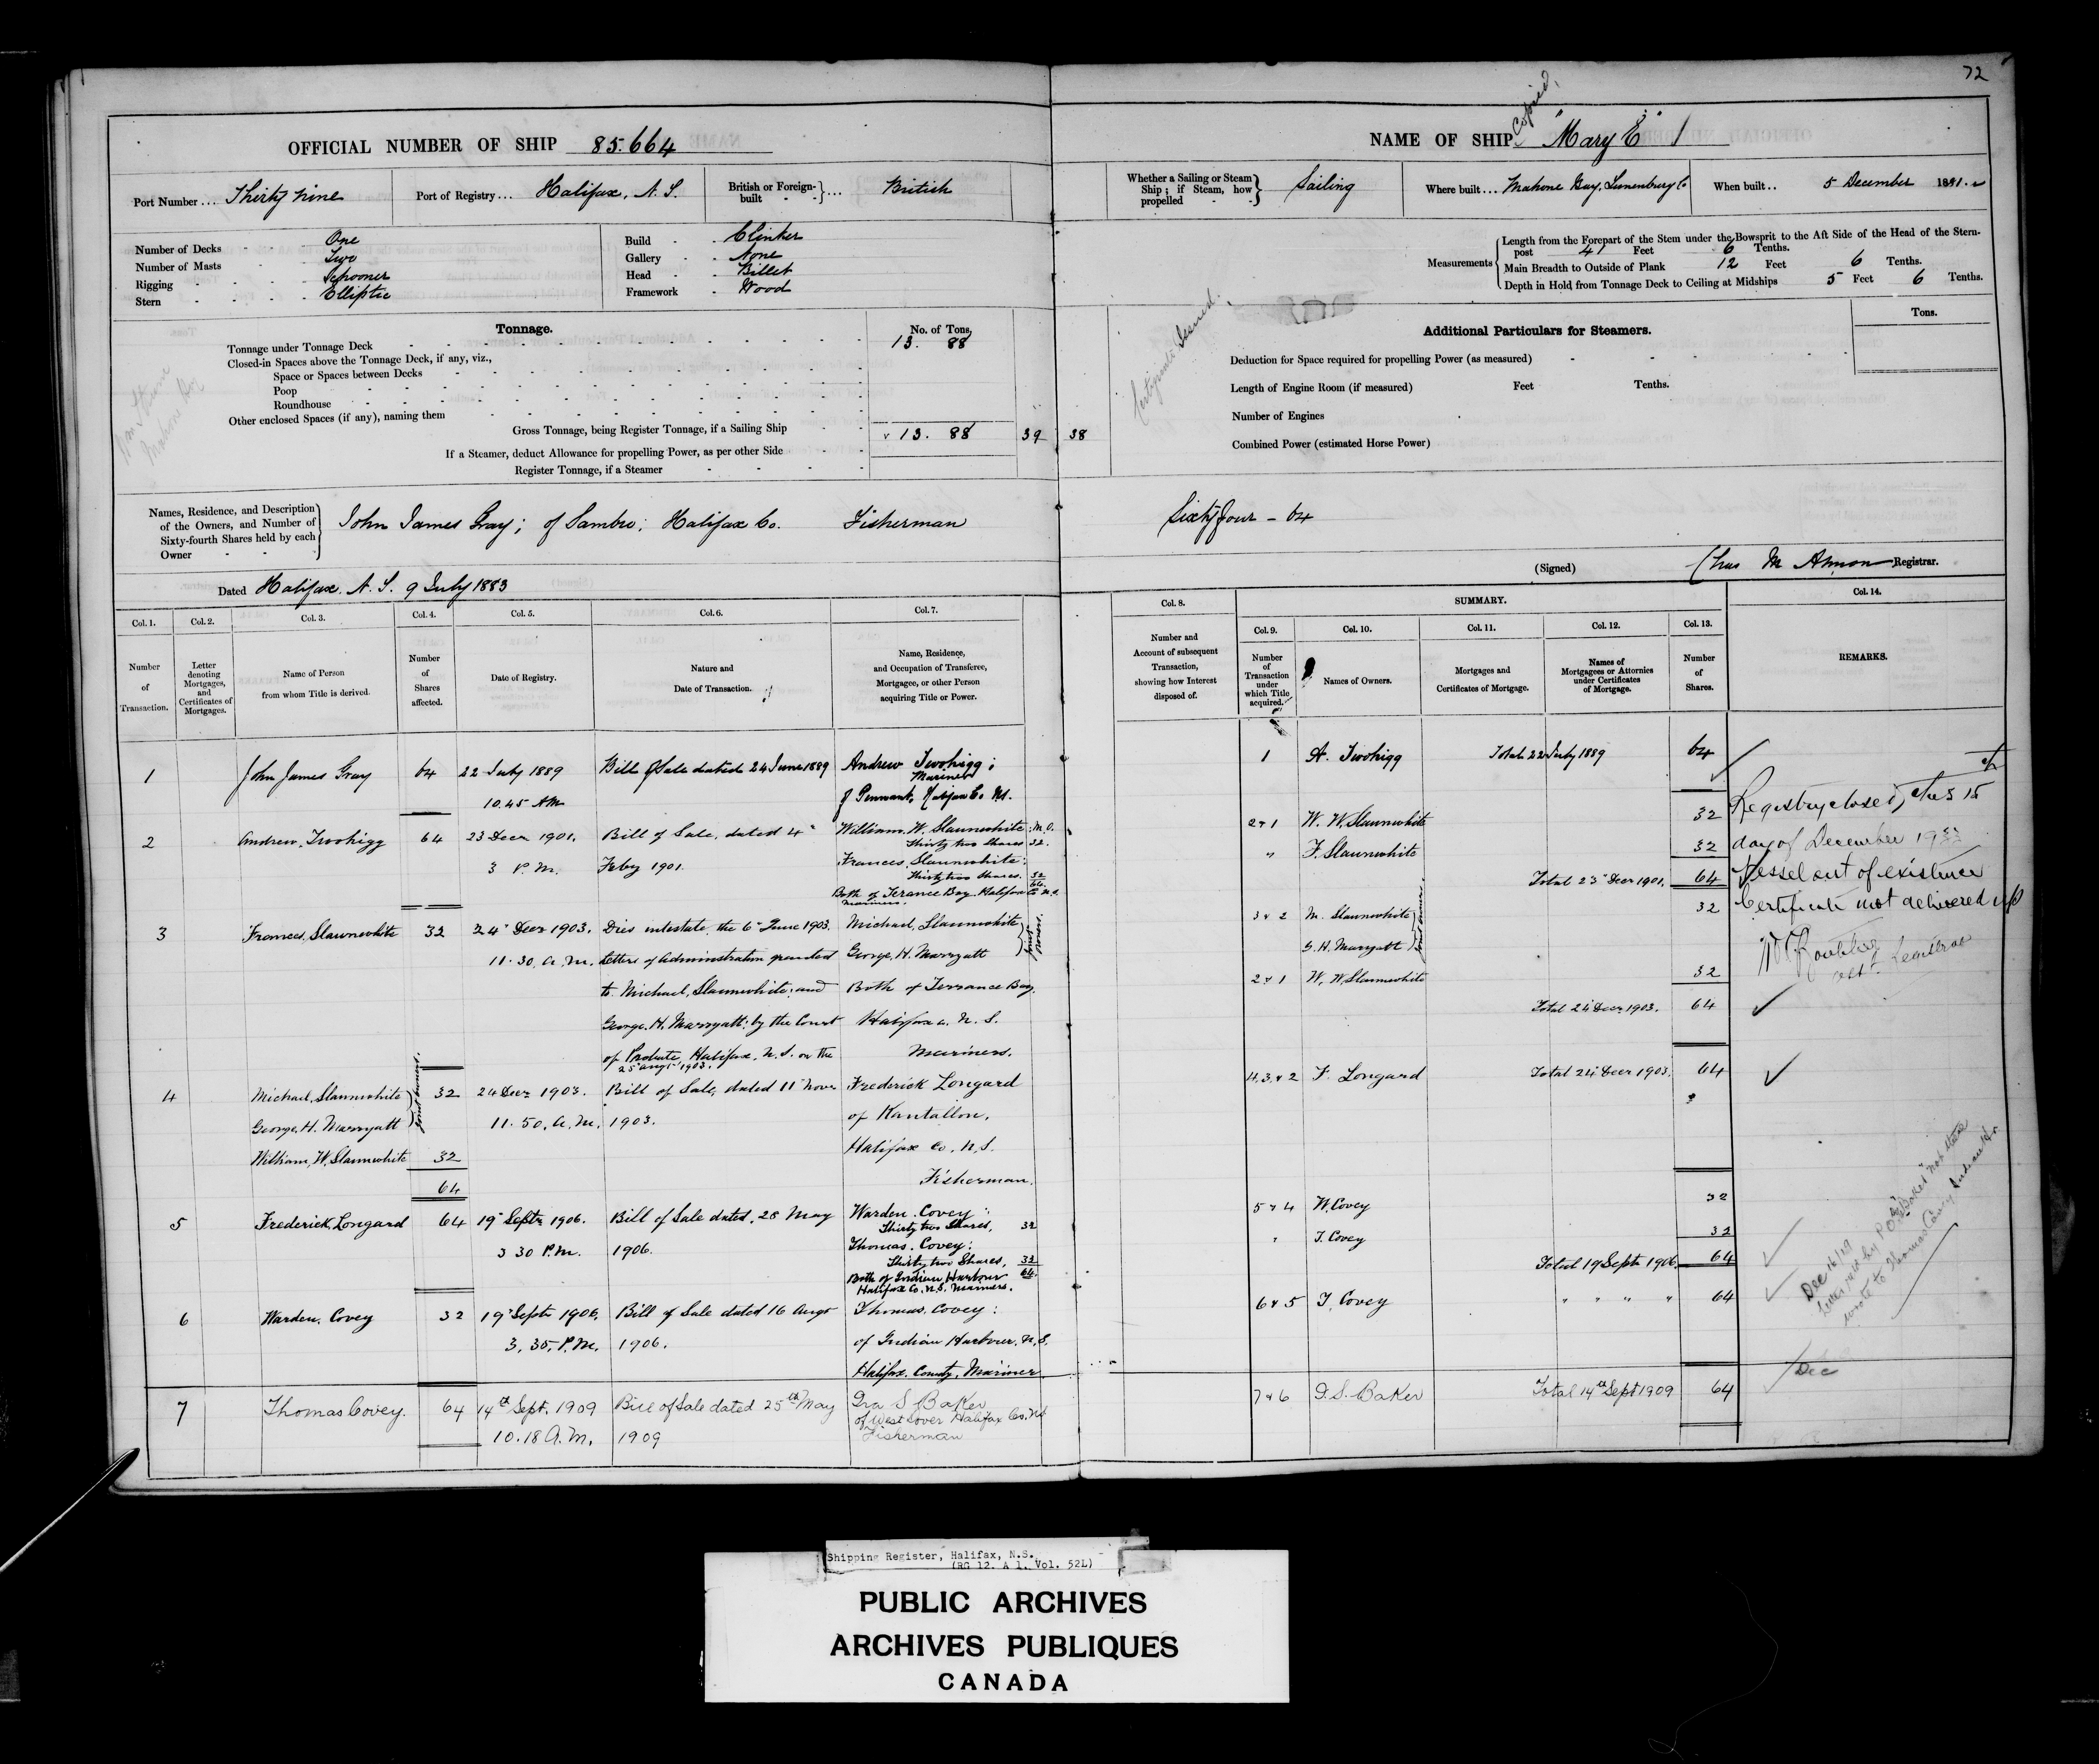 72
OFFICIAL NUMBER OF SHIP 85.664
Port Number ... Thirty nine
Port of Registry ... Halifax, N. S.
British or Foreign-built ... British
Number of Decks - One
Number of Masts - Two
Rigging - Schooner
Stern - Elliptic
Build - Clinker
Gallery - None
Head - Billet
Framework - Wood
Tonnage.
No. of Tons.
Tonnage under Tonnage Deck 13. 88
Closed-in Spaces above the Tonnage Deck, if any, viz.,
Space or Spaces between Decks
Poop
Roundhouse
Other enclosed Spaces (if any), naming them
Gross Tonnage, being Register Tonnage, if a Sailing Ship 13. 88 39
If a Steamer, deduct Allowance for propelling Power, as per other Side
Register Tonnage, if a Steamer
Names, Residence, and Description of the Owners, and Number of Sixty-fourth Shares held by each Owner
John James Gray; of Sambro; Halifax Co. Fisherman
Dated Halifax. N. S. 9 July 1883
Col. 1. Col. 2. Col. 3. Col. 4. Col. 5. Col. 6. Col. 7.
Number of Transaction.
Letter denoting Mortgages, and Certificates of Mortgages.
Name of Person from whom Title is derived.
Number of Shares affected.
Date of Registry.
Nature and Date of Transaction.
Name, Residence, and Occupation of Transferee, Mortgagee, or other Person acquiring Title or Power.
1 John James Gray 64 22 July 1889 Bill of Sale dated 24 June 1889 Andrew Twohigg;
Mariner
10.45 AM of Pennant, Halifax Co. N.S.
2 Andrew Twohigg 64 23 Decr 1901. Bill of Sale, dated 4" William. W. Slaunwhite; M.O.
Thirty two Shares 32.
3 P.M. Feby 1901. Frances, Slaunwhite:
Thirty two Shares. 32
64
Both of Terance Bay Halifax Co N.S.
Mariners.
3 Frances, Slaunwhite 32 24" Decr 1903. Dies intestate, the 6" June 1903. Michael, Slaunwhite
11.30, a.m. Letters of Administration granted George, H. Marryatt
to Michael, Slaunwhite: and Both of Terrance Bay,
George. H. Marryatt: by the Court Halifax Co. N. S.
of Probate, Halifax, N. S. on the Mariners.
25" Augt 1903.
4 Michael, Slaunwhite 32 24 Decr 1903. Bill of Sale, dated 11" Novr Frederick Longard
George, H. Marryatt 11.50, a.m. 1903. of
William, W. Slaunwhite 32 Halifax Co, N. S.
64 Fisherman.
5 Frederick, Longard 64 19" Septr 1906. Bill of Sale dated, 28 May Warden. Covey:
Thirty two Shares, 32
3 30 P.M. 1906. Thomas. Covey:
Thirty two Shares, 32
Both of Indian Harbour 64.
Halifax Co. N. S. Mariners.
6 Warden. Covey 32 19" Septr 1906. Bill of Sale dated 16 Augt Thomas. Covey:
3.35, P.M. 1906. of Indian Harbour. N. S.
Halifax. County, Mariner
7 Thomas Covey. 64 14th Sept. 1909 Bill of Sale dated 25th May Ira S Baker
of West Dover Halifax Co. N.S
10.18 A.M. 1909 Fisherman
Copied,
NAME OF SHIP "Mary E"
Whether a Sailing or Steam Ship; if Steam, how propelled Sailing
Where built ... Mahone Bay, Lunenburg Co
When built .. 5 December 1881.
Measurements
Length from the Forepart of the Stem under the Bowsprit to the Aft Side of the Head of the Stern-post 41 Feet 6 Tenths.
Main Breadth to Outside of Plank 12 Feet 6 Tenths.
Depth in Hold from Tonnage Deck to Ceiling at Midships 5 Feet 6 Tenths.
Certificate Issued.
Additional Particulars for Steamers.
Tons.
Deduction for Space required for propelling Power (as measured)
Length of Engine Room (if measured) Feet Tenths.
Number of Engines
38
Combined Power (estimated Horse Power)
Sixty four - 64
(Signed) Chas M Almon Registrar.
Col. 8. SUMMARY. Col. 14.
Col. 9. Col. 10. Col. 11. Col. 12. Col. 13.
Number and Account of subsequent Transaction, showing how Interest disposed of.
Number of Transaction under which Title acquired.
Names of Owners.
Mortgages and Certificates of Mortgage.
Names of Mortgagees or Attornies under Certificates of Mortgage.
Number of Shares.
REMARKS.
1 A. Twohigg Total 22 July 1889 64
2 & 1 W. W. Slaunwhite 32
" F. Slaunwhite 32
Total 23" Decr 1901. 64
3 & 2 M. Slaunwhite 32
G. H. Marryatt
2 & 1 W, W. Slaunwhite 32
Total 24" Decr 1903. 64
4, 3, & 2 F. Longard Total 24" Decr 1903. 64
5 & 4 W. Covey 32
" T. Covey 32
Total 19 Sept 1906. 64
6 & 5 T. Covey " " " " 64
7 & 6 I. S. Baker Total 14th Sept 1909 64
Registry closed, this 15
day of December 1933
Vessel out of existence
Certificate not delivered up
Registrar
Dec 16/19
wrote to Thomas Covey Indian Hr.
Dec
Shipping Register, Halifax, N.S.
(RG 12. A 1. Vol. 52L)
PUBLIC ARCHIVES
ARCHIVES PUBLIQUES
CANADA